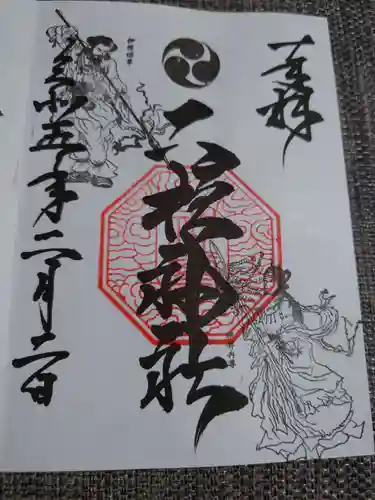 奉拝
二柱神社
令和五年二月二日